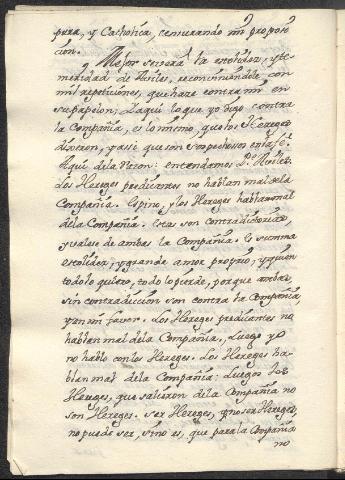 pura, y Catholica, censurando mi proposi
cion.
Mejor se verà la estolidez, y te
meridad de Aviles, reconviniendole con
mil repeticiones, que haze contra mi en
su papelon; Laqui lo que yo digo contra
la Compañia, es lo mismo, que los Hereges
dixeron, y assi que son sospechosos en la fè.
Aqui dela razon: entendamos P.e Aviles.
Los Hereges predicantes no hablan mal dela
Compañia. Espino, y los Hereges hablan mal
dela Compañia. Estas son contradictorias
y vale se de ambas la Compañia. Es summa
estolidez, y grande amor proprio; y quien
todo lo quiere, todo lo pierde, porque ambas,
sin contradiccion son contra la Compañia,
y en mi favor. Los Hereges predicantes no
hablan mal dela Compañia, Luego yo
no hablo con los Hereges. Los Hereges ha-
blan mal dela Compañia: Luego los
Hereges, que salieron dela Compañia no
son Hereges. Ser Hereges, y no ser Hereges,
no puede ser, sino es, que para la Compañia
no